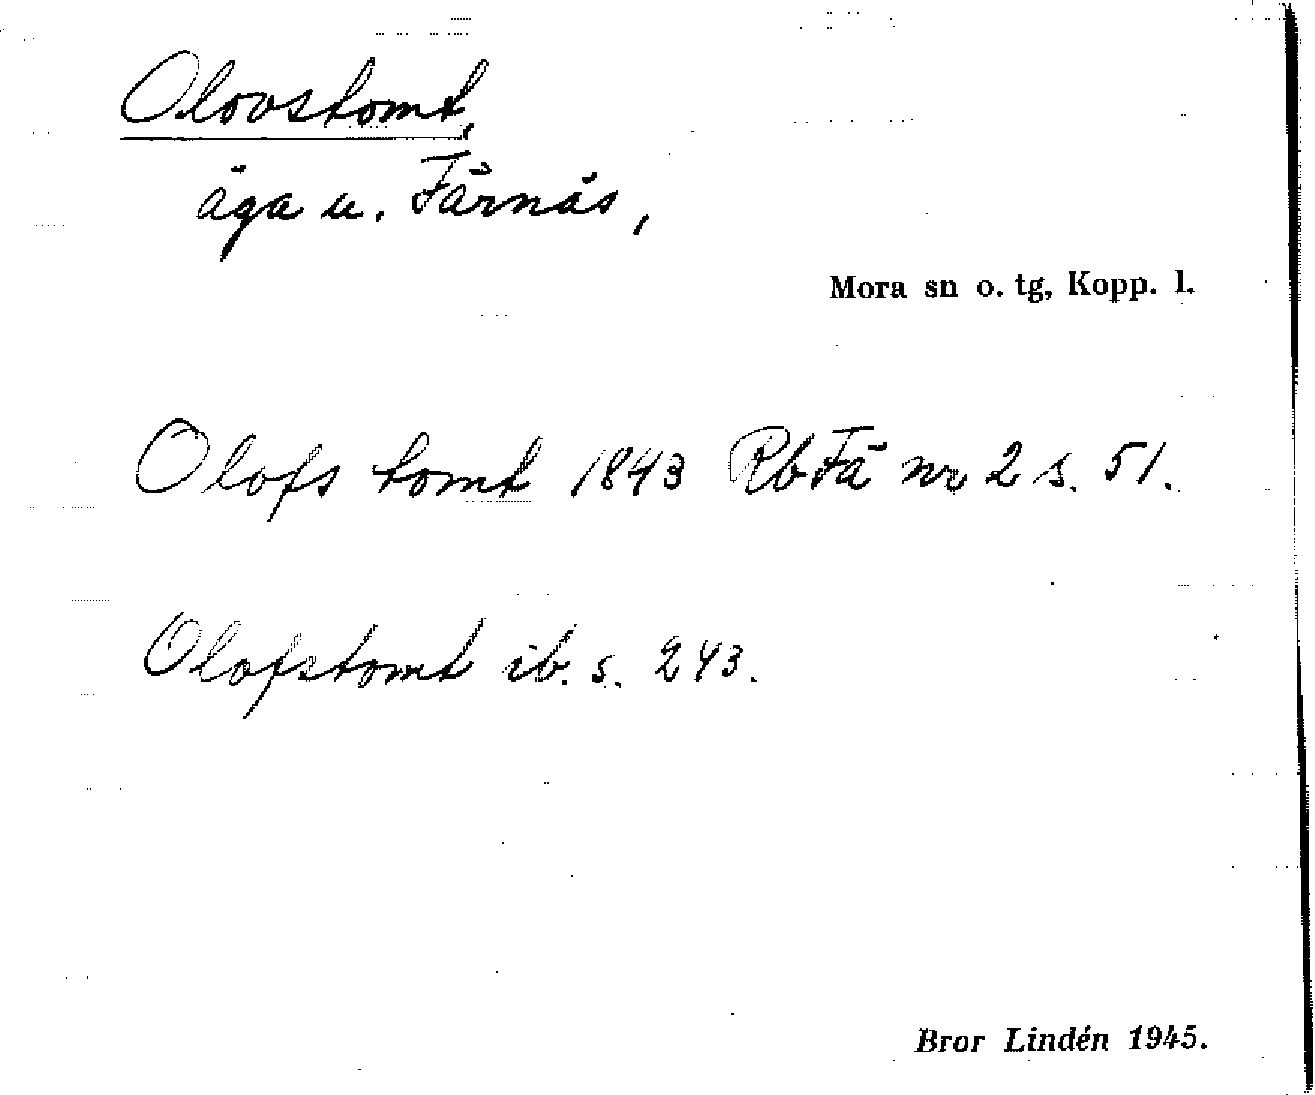 Olovstomt,
äga u. Färnäs,
Mora sn o. tg, Kopp. l.
Olofs tomt 1843 Rb Fä nr 2 s. 51.
Olofstomt ib. s. 243.
Bror Lindén 1945.